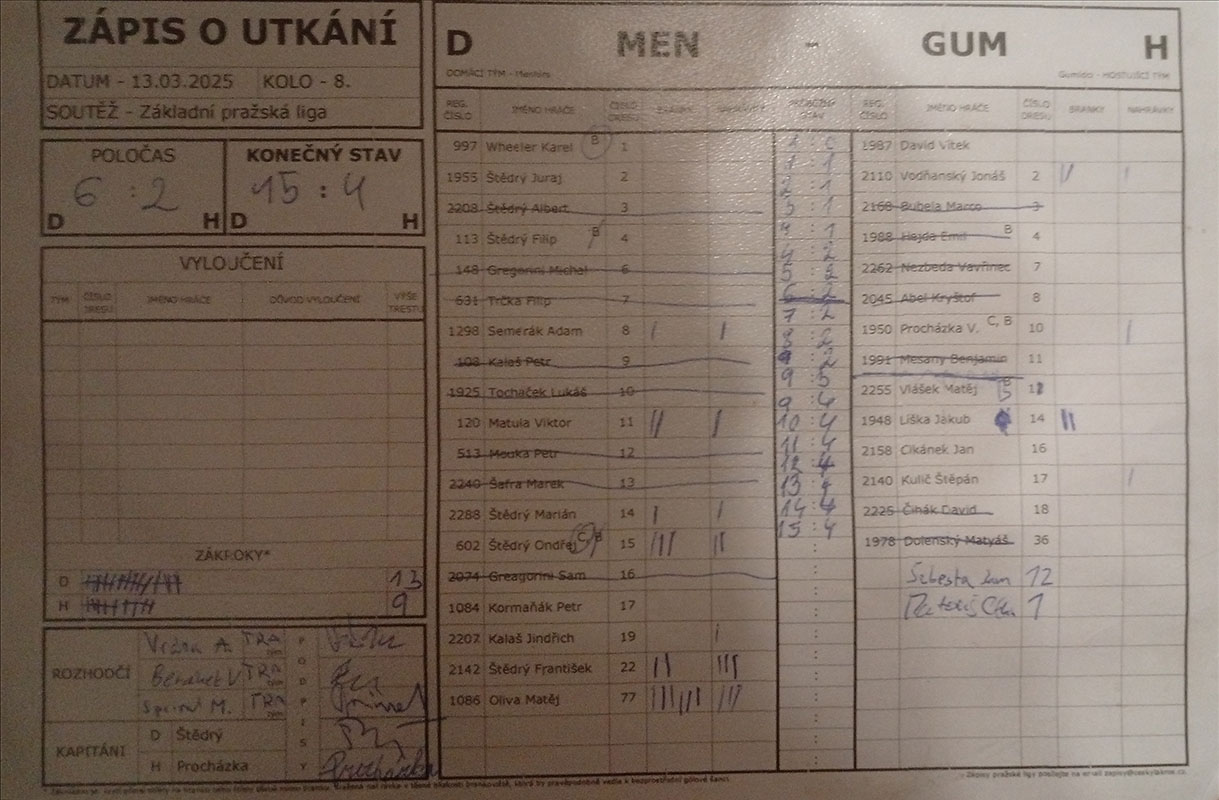 ZÁPIS O UTKÁNÍ
DATUM - 13.03.2025 KOLO - 8.
SOUTĚŽ - Základní pražská liga
POLOČAS
6 : 2
D H
KONEČNÝ STAV
15 : 4
D H
VYLOUČENÍ
TÝM ČÍSLO DRESU JMÉNO HRÁČE DŮVOD VYLOUČENÍ VÝŠE TRESTU
ZÁKROKY*
D 13
H 9
ROZHODČÍ
TRA
TRA
TRA
PODPISY
KAPITÁNI
D Štědrý
H Procházka Procházka
D MEN - GUM H
DOMÁCÍ TÝM - Mentos Gumído - HOSTUJÍCÍ TÝM
REG. ČÍSLO JMÉNO HRÁČE ČÍSLO DRESU BRANKY NAHRÁVKY PRŮBĚŽNÝ STAV REG. ČÍSLO JMÉNO HRÁČE ČÍSLO DRESU BRANKY NAHRÁVKY
997 Wheeler Karel B 1
1955 Štědrý Juraj 2
2208 Štědrý Albert 3
113 Štědrý Filip B 4
148 Gregorini Michal 6
631 Trčka Filip 7
1298 Semerák Adam 8 | |
108 Kalaš Petr 9
1925 Tocháček Lukáš 10
120 Matula Viktor 11 || |
513 Mouka Petr 12
2240 Šafra Marek 13
2288 Štědrý Marián 14 | |
602 Štědrý Ondřej C B 15 ||| ||
2074 Greagorini Sam 16
1084 Kormaňák Petr 17
2202 Kalaš Jindřich 19 |
2142 Štědrý František 22 || |||
1086 Oliva Matěj 77
1 : 0
1 : 1
2 : 1
3 : 1
4 : 1
4 : 2
5 : 2
6 : 2
7 : 2
8 : 2
9 : 2
9 : 3
9 : 4
10 : 4
11 : 4
12 : 4
13 : 4
14 : 4
15 : 4
1987 David Vítek
2110 Vodňanský Jonáš 2 || |
2168 Bubela Marco 3
1988 Hejda Emil B 4
2262 Nezbeda Vavřinec 7
2045 Abel Kryštof 8
1950 Procházka V. C, B 10 |
1991 Mesany Benjamin 11
2255 Vlášek Matěj B
1948 Liška Jakub 14 ||
2158 Cikánek Jan 16
2140 Kulič Štěpán 17 |
2225 Čihák David 18
1978 Dolenský Matyáš 36
Šebesta Jan 12
1